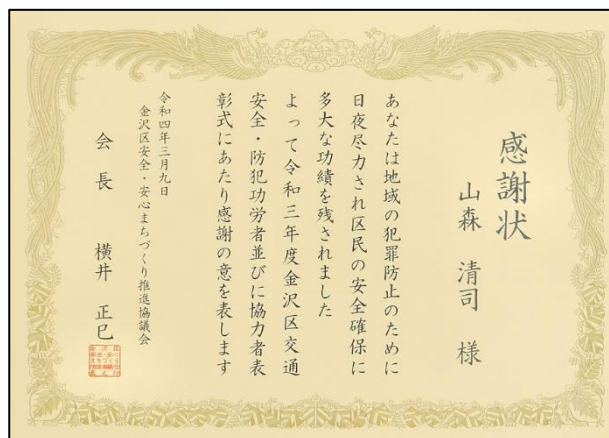 感謝状
山森 清司 様
あなたは地域の犯罪防止のために
日夜尽力され区民の安全確保に
多大な功績を残されました
よって令和三年度金沢区交通
安全・防犯功労者並びに協力者表
彰式にあたり感謝の意を表します
令和四年三月九日
金沢区安全・安心まちづくり推進協議会
会長 横井 正巳